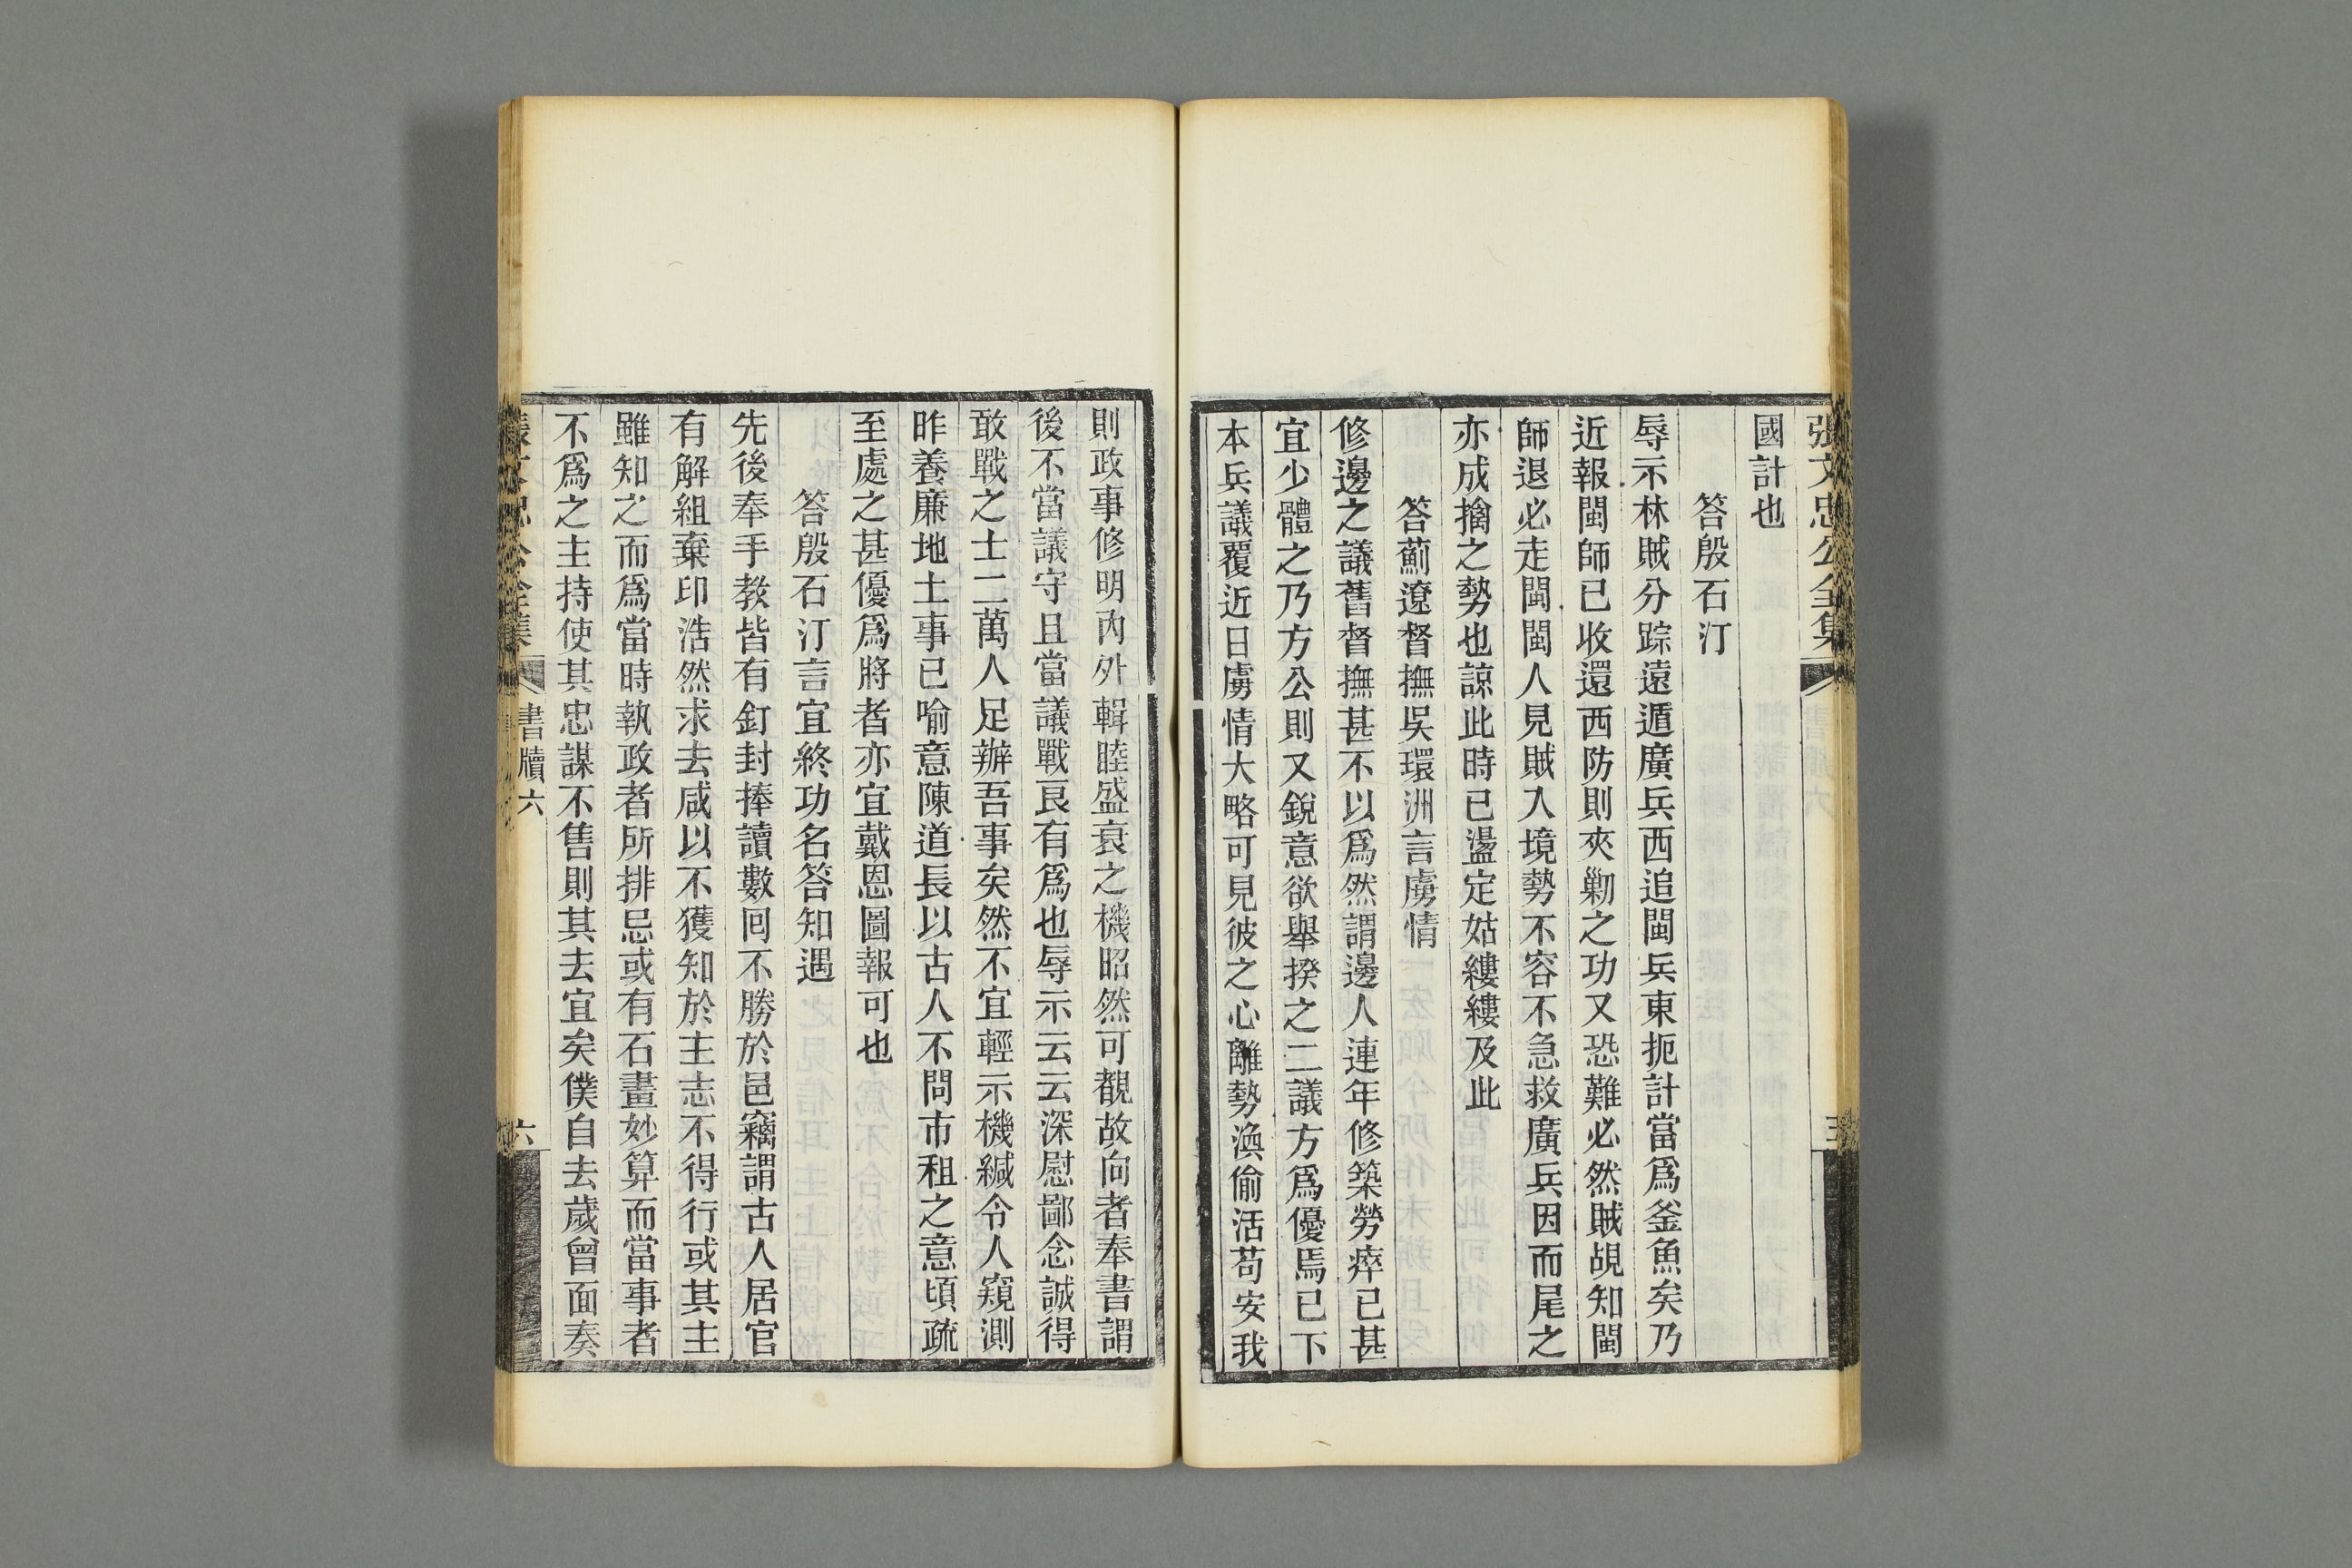 張文忠公全集
國計也
答殷石汀
辱示林賊分踪遠遁廣兵西追閩兵東扼計當爲釜魚矣乃
近報閩師已收還西防則夾勦之功又恐難必然賊覘知閩
師退必走閩閩人見賊入境勢不容不急救廣兵因而尾之
亦成擒之勢也諒此時已盪定姑縷縷及此
答薊遼督撫吳環洲言虜情
修邊之議舊督撫甚不以爲然謂邊人連年修築勞瘁已甚
宜少體之乃方公則又銳意欲舉揆之二議方爲優焉已下
本兵議覆近日虜情大略可見彼之心離勢渙偷活苟安我
則政事修明內外輯睦盛衰之機昭然可覩故向者奉書謂
後不當議守且當議戰良有爲也辱示云云深慰鄙念誠得
敢戰之士二萬人足辦吾事矣然不宜輕示機緘令人窺測
昨養廉地土事已喻意陳道長以古人不問市租之意頃疏
至處之甚優爲將者亦宜戴恩圖報可也
答殷石汀言宜終功名答知遇
先後奉手教皆有釘封捧讀數囘不勝於邑竊謂古人居官
有解組棄印浩然求去咸以不獲知於主志不得行或其主
雖知之而爲當時執政者所排忌或有石畫妙算而當事者
不爲之主持使其忠謀不售則其去宜矣僕自去歲曾面奏
書牘六
六